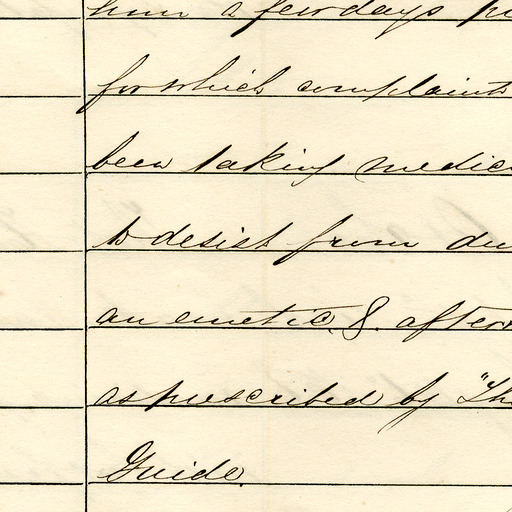 him a few days
for which complaints
been taking medic
to desist from du
an emetic & after
as prescribed by "Th
Guide.